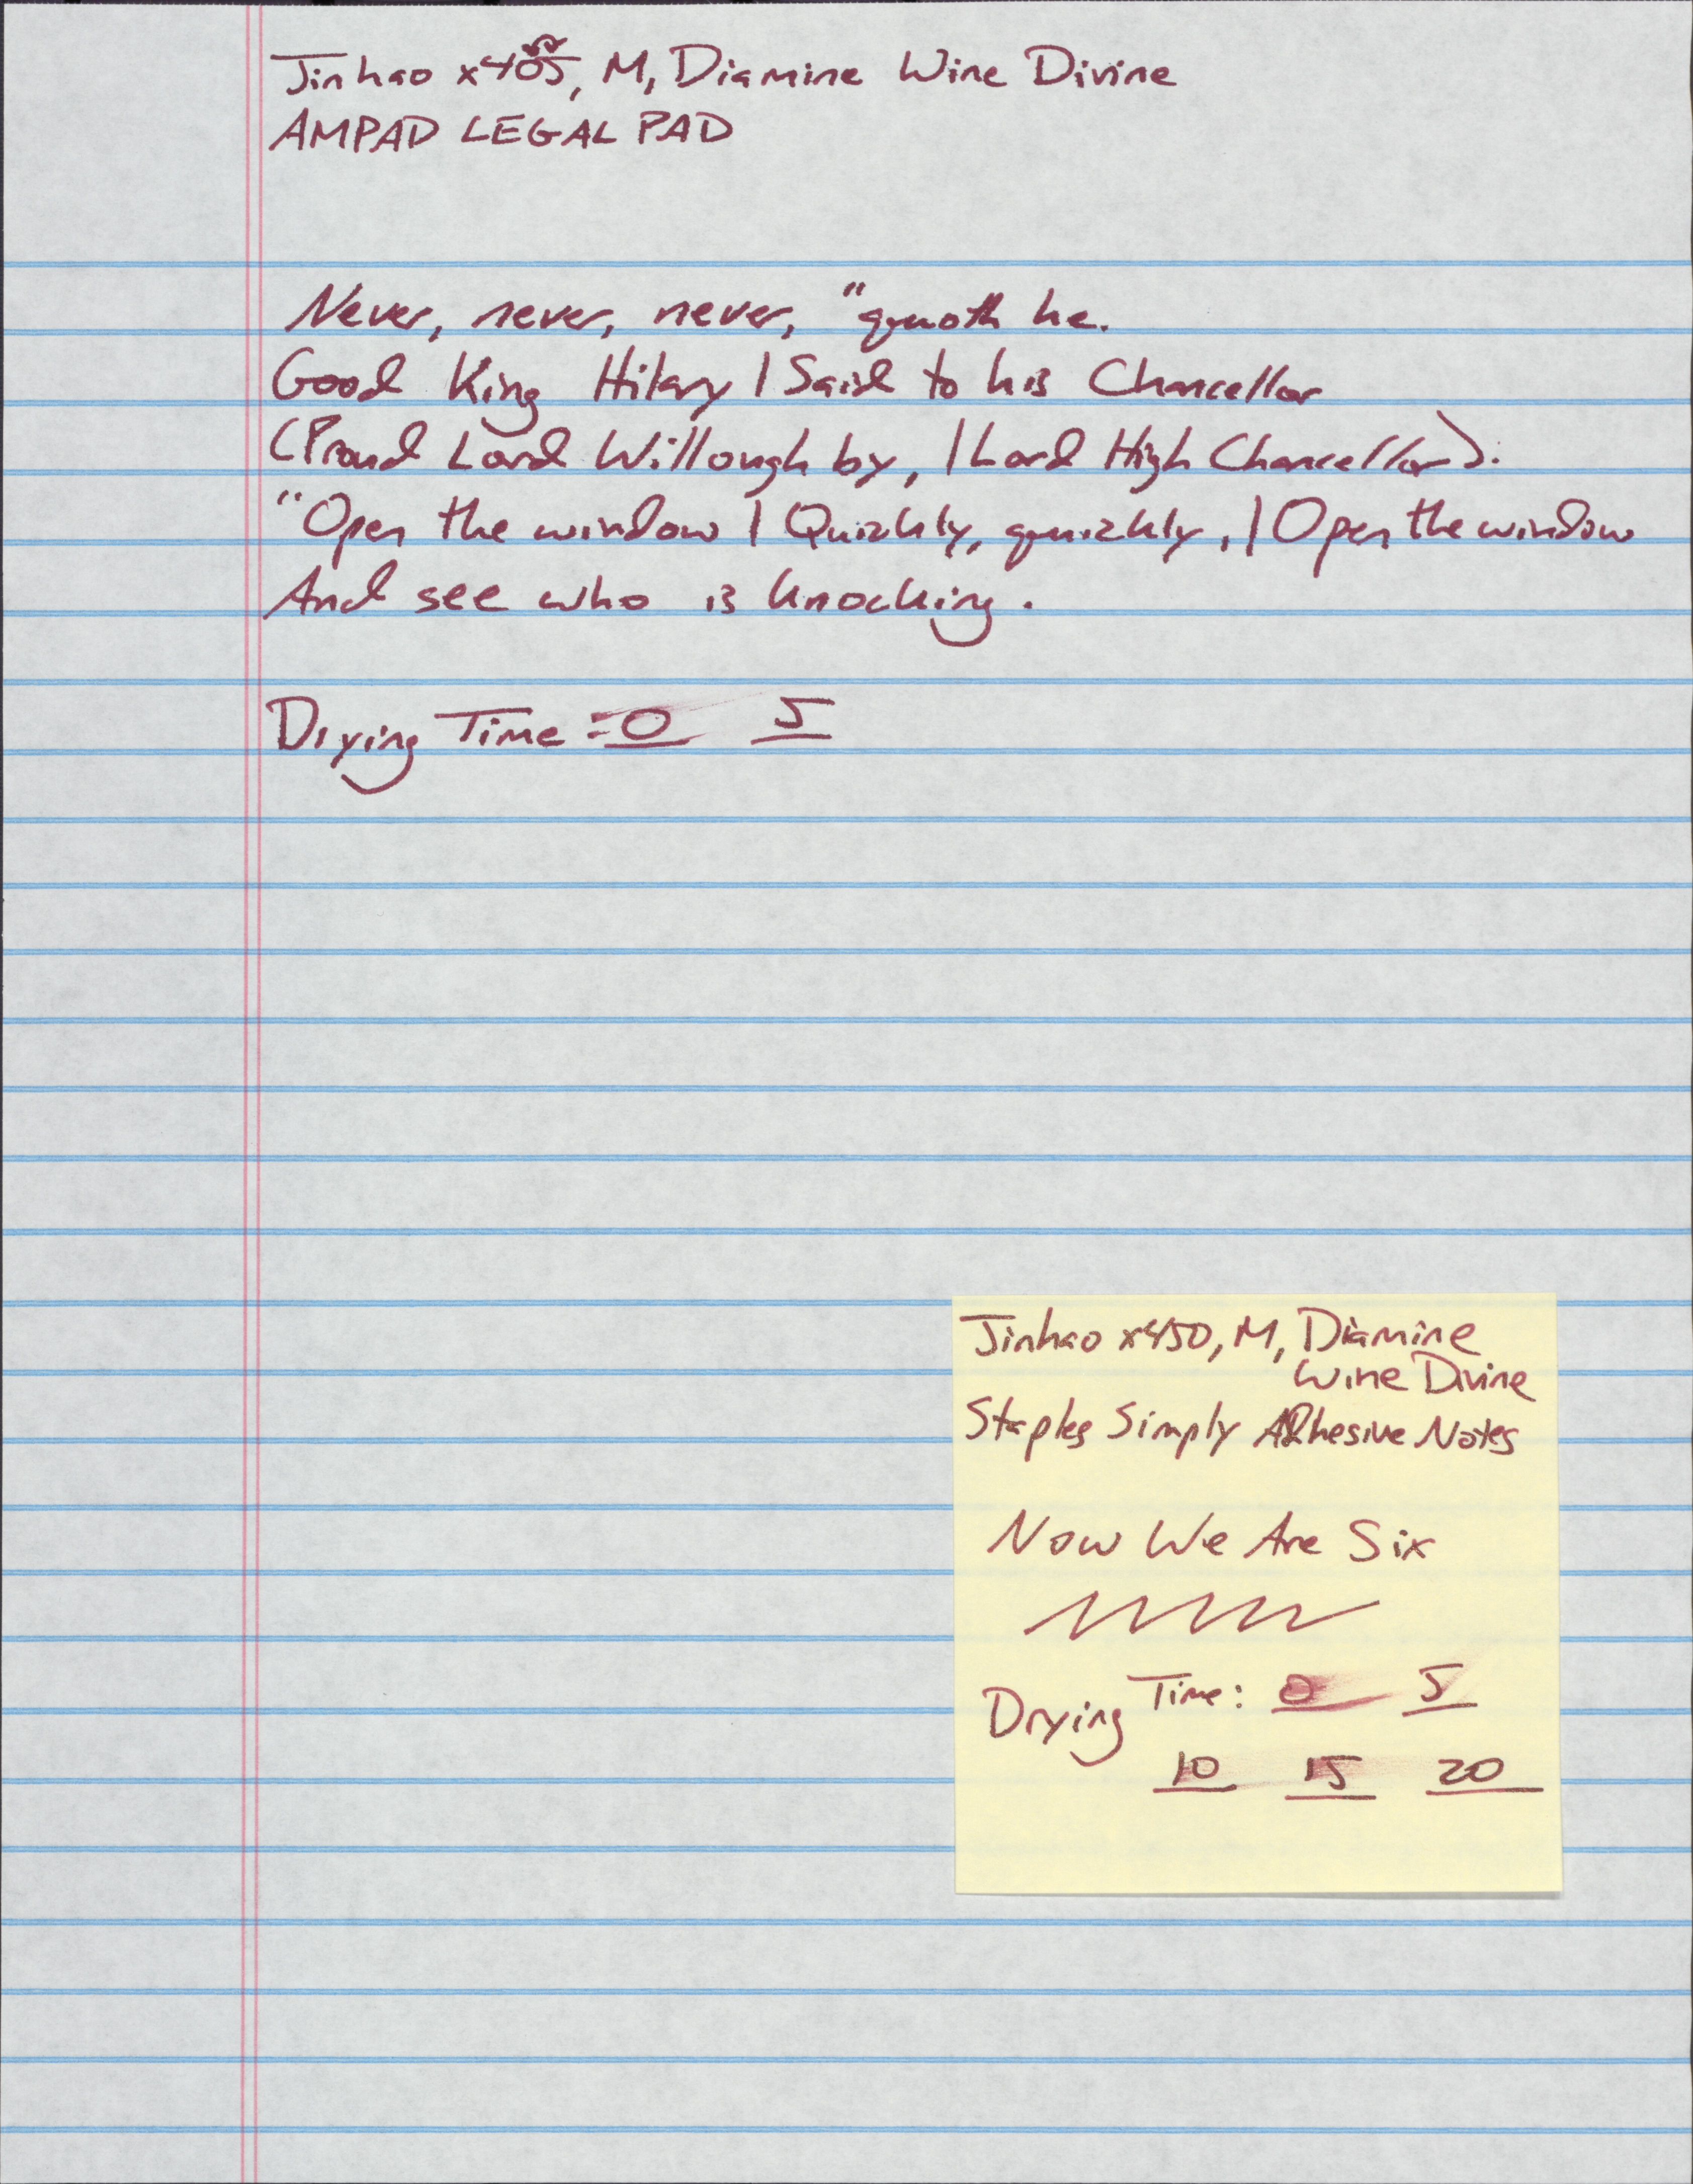 Jinhao x405, M, Diamine Wine Divine
AMPAD LEGAL PAD
Never, never, never, "quoth he.
Good King Hilary | Said to his Chancellor
(Proud Lord Willoughby, | Lord High Chancellor).
"Open the window | Quickly, quickly, | Open the window
And see who is knocking.
Drying Time: 0 5
Jinhao x450, M, Diamine
Wine Divine
Staples Simply Adhesive Notes
Now We Are Six
Drying Time: 0 5
10 15 20